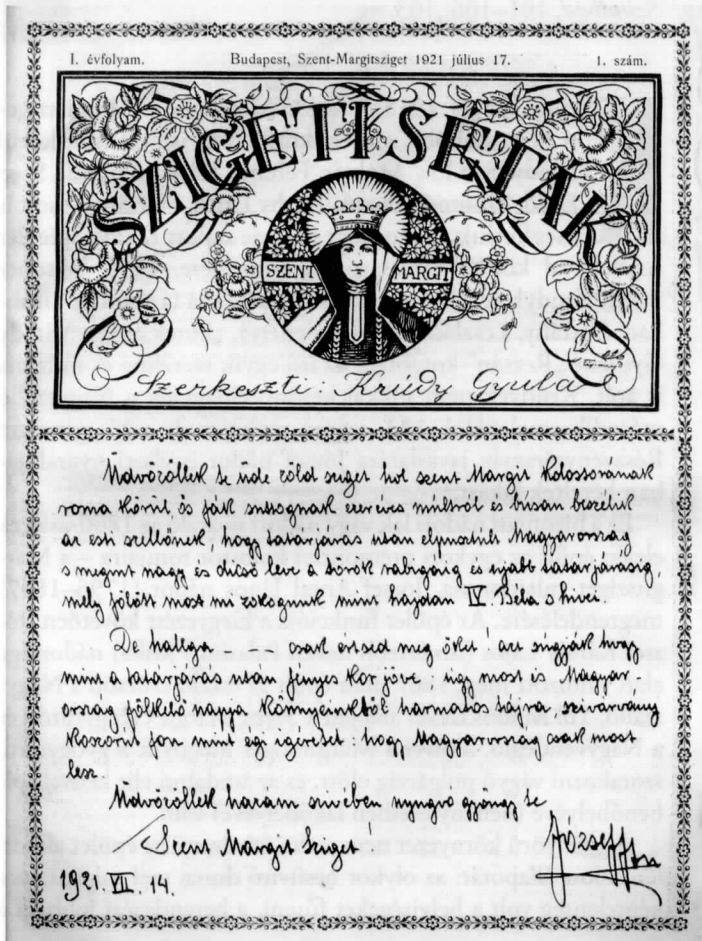 I. évfolyam. Budapest, Szent-Margitsziget 1921 július 17. 1. szám.
SZIGETI SÉTÁK
SZENT MARGIT
Szerkeszti: Krúdy Gyula
Üdvözöllek te üde zöld sziget hol szent Margit kolostorának
roma körül ős fák susognak ezeréves multról és búsan beszélik
az esti szellőnek, hogy tatárjárás után elpusztult Magyarország
s megint nagy és dicső leve a török rabigáig és ujabb tatárjárásig,
mely fölött most mi zokogunk mint hajdan IV. Béla s hívei.
De hallga — csak értsed meg őket! azt súgják hogy
mint a tatárjárás után fényes kor jöve úgy most is Magyar
ország fölkelő napja könnyeinkből harmatos tájra szivárvány
koszorút fon, mint égi igéretet: hogy Magyarország csak most
lesz.
Üdvözöllek hazám szívében nyugvó gyöngy te
Szent Margit Sziget!
József
1921. VII. 14.